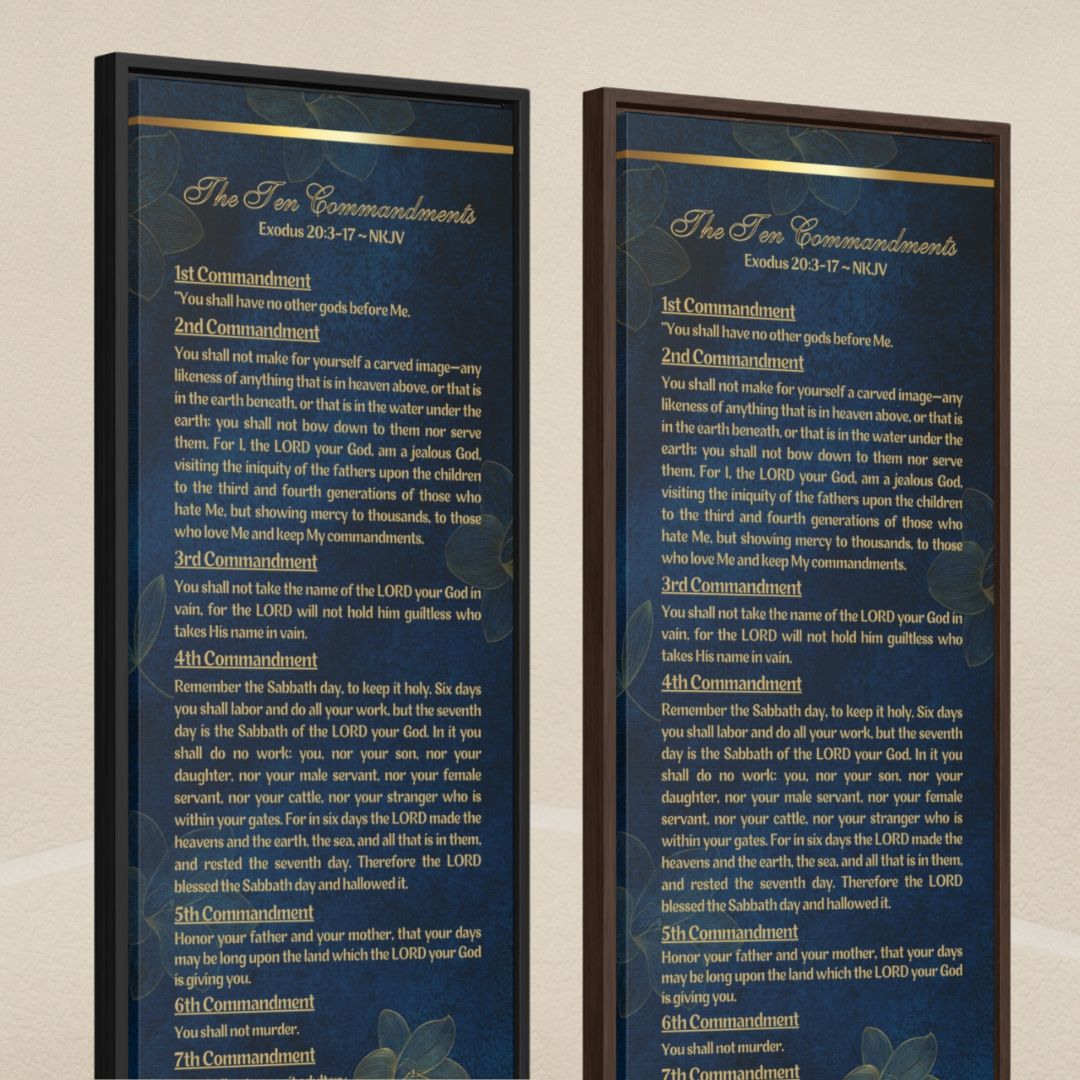 The Ten Commandments
Exodus 20:3-17 ~ NKJV
1st Commandment
"You shall have no other gods before Me.
2nd Commandment
You shall not make for yourself a carved image—any
likeness of anything that is in heaven above, or that is
in the earth beneath, or that is in the water under the
earth; you shall not bow down to them nor serve
them. For I, the LORD your God, am a jealous God,
visiting the iniquity of the fathers upon the children
to the third and fourth generations of those who
hate Me, but showing mercy to thousands, to those
who love Me and keep My commandments.
3rd Commandment
You shall not take the name of the LORD your God in
vain, for the LORD will not hold him guiltless who
takes His name in vain.
4th Commandment
Remember the Sabbath day, to keep it holy. Six days
you shall labor and do all your work, but the seventh
day is the Sabbath of the LORD your God. In it you
shall do no work: you, nor your son, nor your
daughter, nor your male servant, nor your female
servant, nor your cattle, nor your stranger who is
within your gates. For in six days the LORD made the
heavens and the earth, the sea, and all that is in them,
and rested the seventh day. Therefore the LORD
blessed the Sabbath day and hallowed it.
5th Commandment
Honor your father and your mother, that your days
may be long upon the land which the LORD your God
is giving you.
6th Commandment
You shall not murder.
7th Commandment
The Ten Commandments
Exodus 20:3-17 ~ NKJV
1st Commandment
"You shall have no other gods before Me.
2nd Commandment
You shall not make for yourself a carved image—any
likeness of anything that is in heaven above, or that is
in the earth beneath, or that is in the water under the
earth; you shall not bow down to them nor serve
them. For I, the LORD your God, am a jealous God,
visiting the iniquity of the fathers upon the children
to the third and fourth generations of those who
hate Me, but showing mercy to thousands, to those
who love Me and keep My commandments.
3rd Commandment
You shall not take the name of the LORD your God in
vain, for the LORD will not hold him guiltless who
takes His name in vain.
4th Commandment
Remember the Sabbath day, to keep it holy. Six days
you shall labor and do all your work, but the seventh
day is the Sabbath of the LORD your God. In it you
shall do no work: you, nor your son, nor your
daughter, nor your male servant, nor your female
servant, nor your cattle, nor your stranger who is
within your gates. For in six days the LORD made the
heavens and the earth, the sea, and all that is in them,
and rested the seventh day. Therefore the LORD
blessed the Sabbath day and hallowed it.
5th Commandment
Honor your father and your mother, that your days
may be long upon the land which the LORD your God
is giving you.
6th Commandment
You shall not murder.
7th Commandment